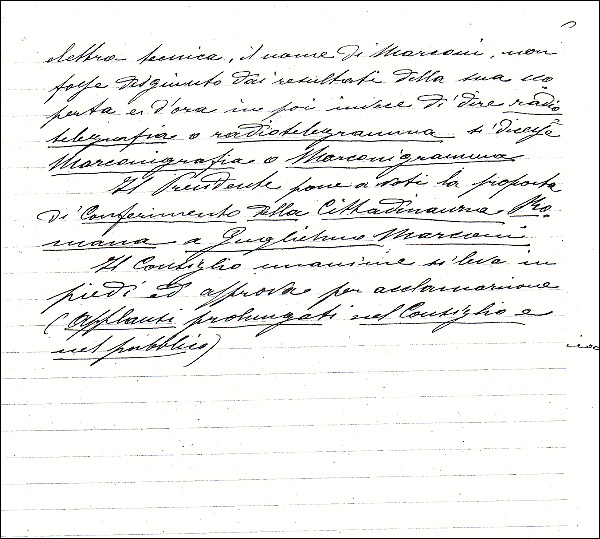 elettro tecnica, il nome di Marconi, non
fosse disgiunto dai resultati della sua sco
perta e d'ora in poi invece di dire radio
telegrafia o radiotelegramma si dicesse
Marconigrafia o Marconigramma
Il Presidente pone a voti la proposta
di Conferimento della Cittadinanza Ro-
mana a Guglielmo Marconi
Il Consiglio unanime si leva in
piedi ed approva per acclamazione
(Applausi prolungati nel Consiglio e
nel pubblico)